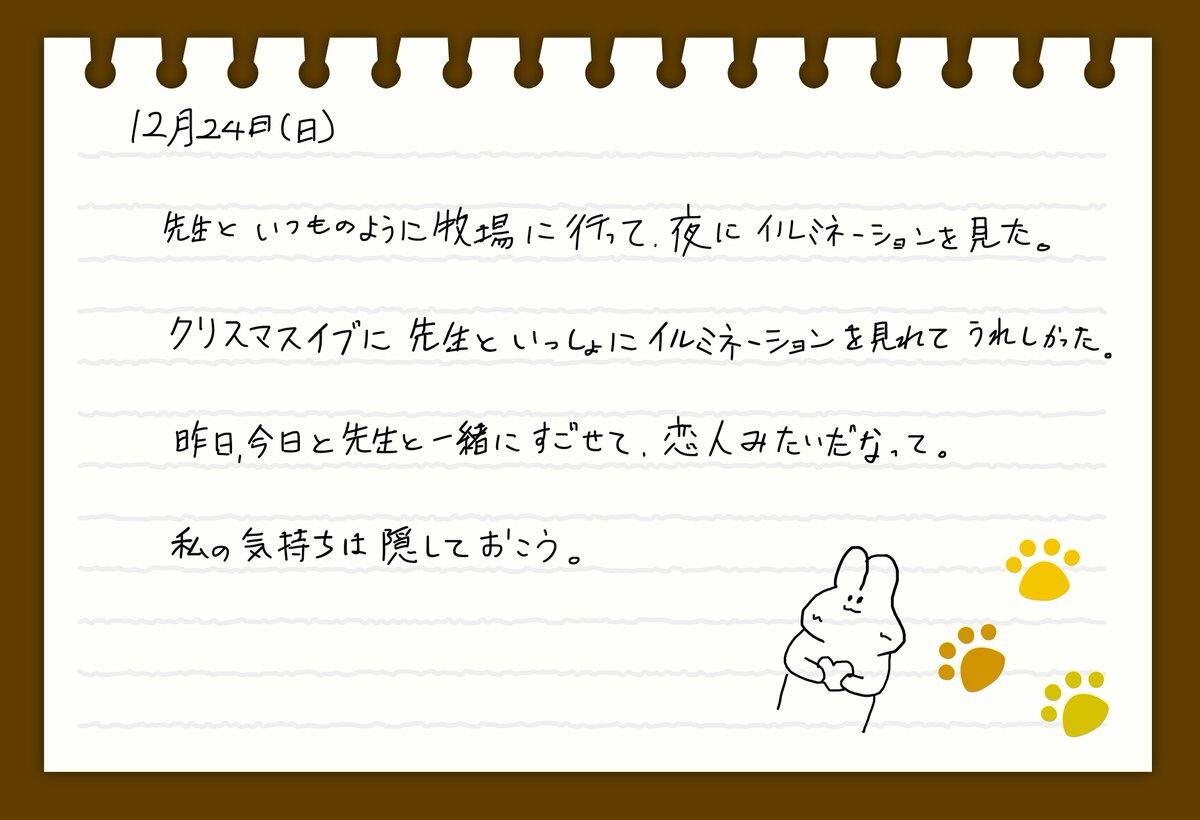 12月24日(日)
先生といつものように牧場に行って、夜にイルミネーションを見た。
クリスマスイブに先生といっしょにイルミネーションを見れてうれしかった。
昨日,今日と先生と一緒にすごせて、恋人みたいだなって。
私の気持ちは隠しておこう。